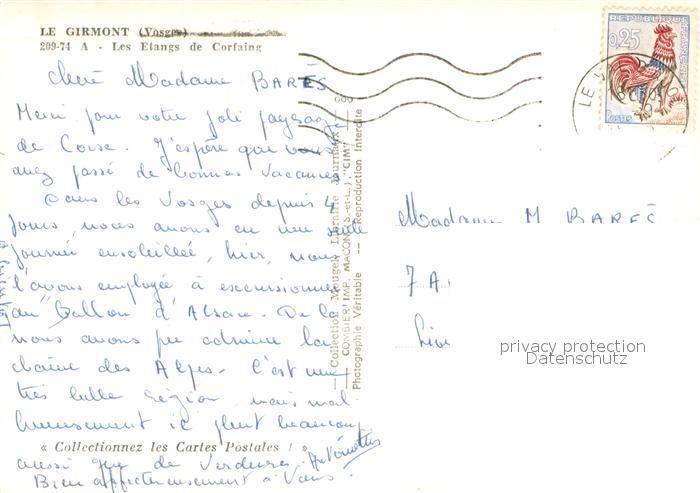 LE GIRMONT (Vosges)
209-74 A - Les Etangs de Corfaing
Chère Madame BARES
Merci pour votre joli paysage
de Corse. J'espère que vous
avez passé de bonnes vacances.
Dans les Vosges depuis 4
jours, nous avons eu une seule
journée ensoleillée, hier, nous
l'avons employée à excursionner
au "Ballon d'Alsace. De là
nous avons pu admirer la
chaîne des Alpes. C'est une
très belle région, mais mal-
heureusement il pleut beaucoup
« Collectionnez les Cartes Postales ! »
aussi que de verdures.
Bien affectueusement à Vous.
Collection Mougel, Librairie Journaux
COMBIER IMP. MACON (S.-et-L.) "CIM"
Photographie Véritable - Reproduction Interdite
REPUBLIQUE
0,25
Madame M BARES
7 A
privacy protection
Datenschutz